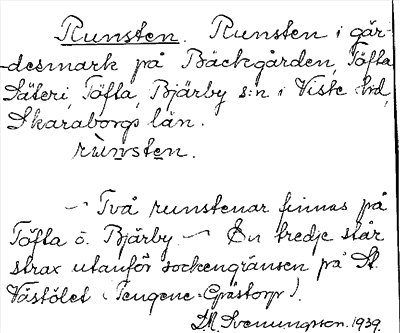 Runsten. Runsten i gär-
desmark på Bäckgården, Töfta
Säteri, Töfta, Bjärby s:n i Viste hd,
Skaraborgs län.
rùnsten.
— Två runstenar finnas på
Töfta ö. Bjärby. — En tredje står
strax utanför sockengränsen på St.
Västölet (Tengene-Grästorp).
Svenungson. 1939.